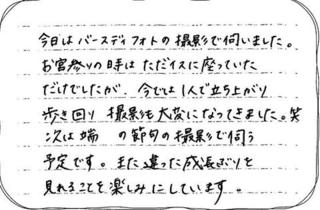 今日はバースディフォトの撮影で伺いました。
お宮参りの時は ただイスに座っていた
だけでしたが、今では1人で立ち上がり
歩き回り 撮影も大変になってきました。笑
次は端 の節句の撮影で伺う
予定です。また違った成長ぶりを
見れることを楽しみにしています。